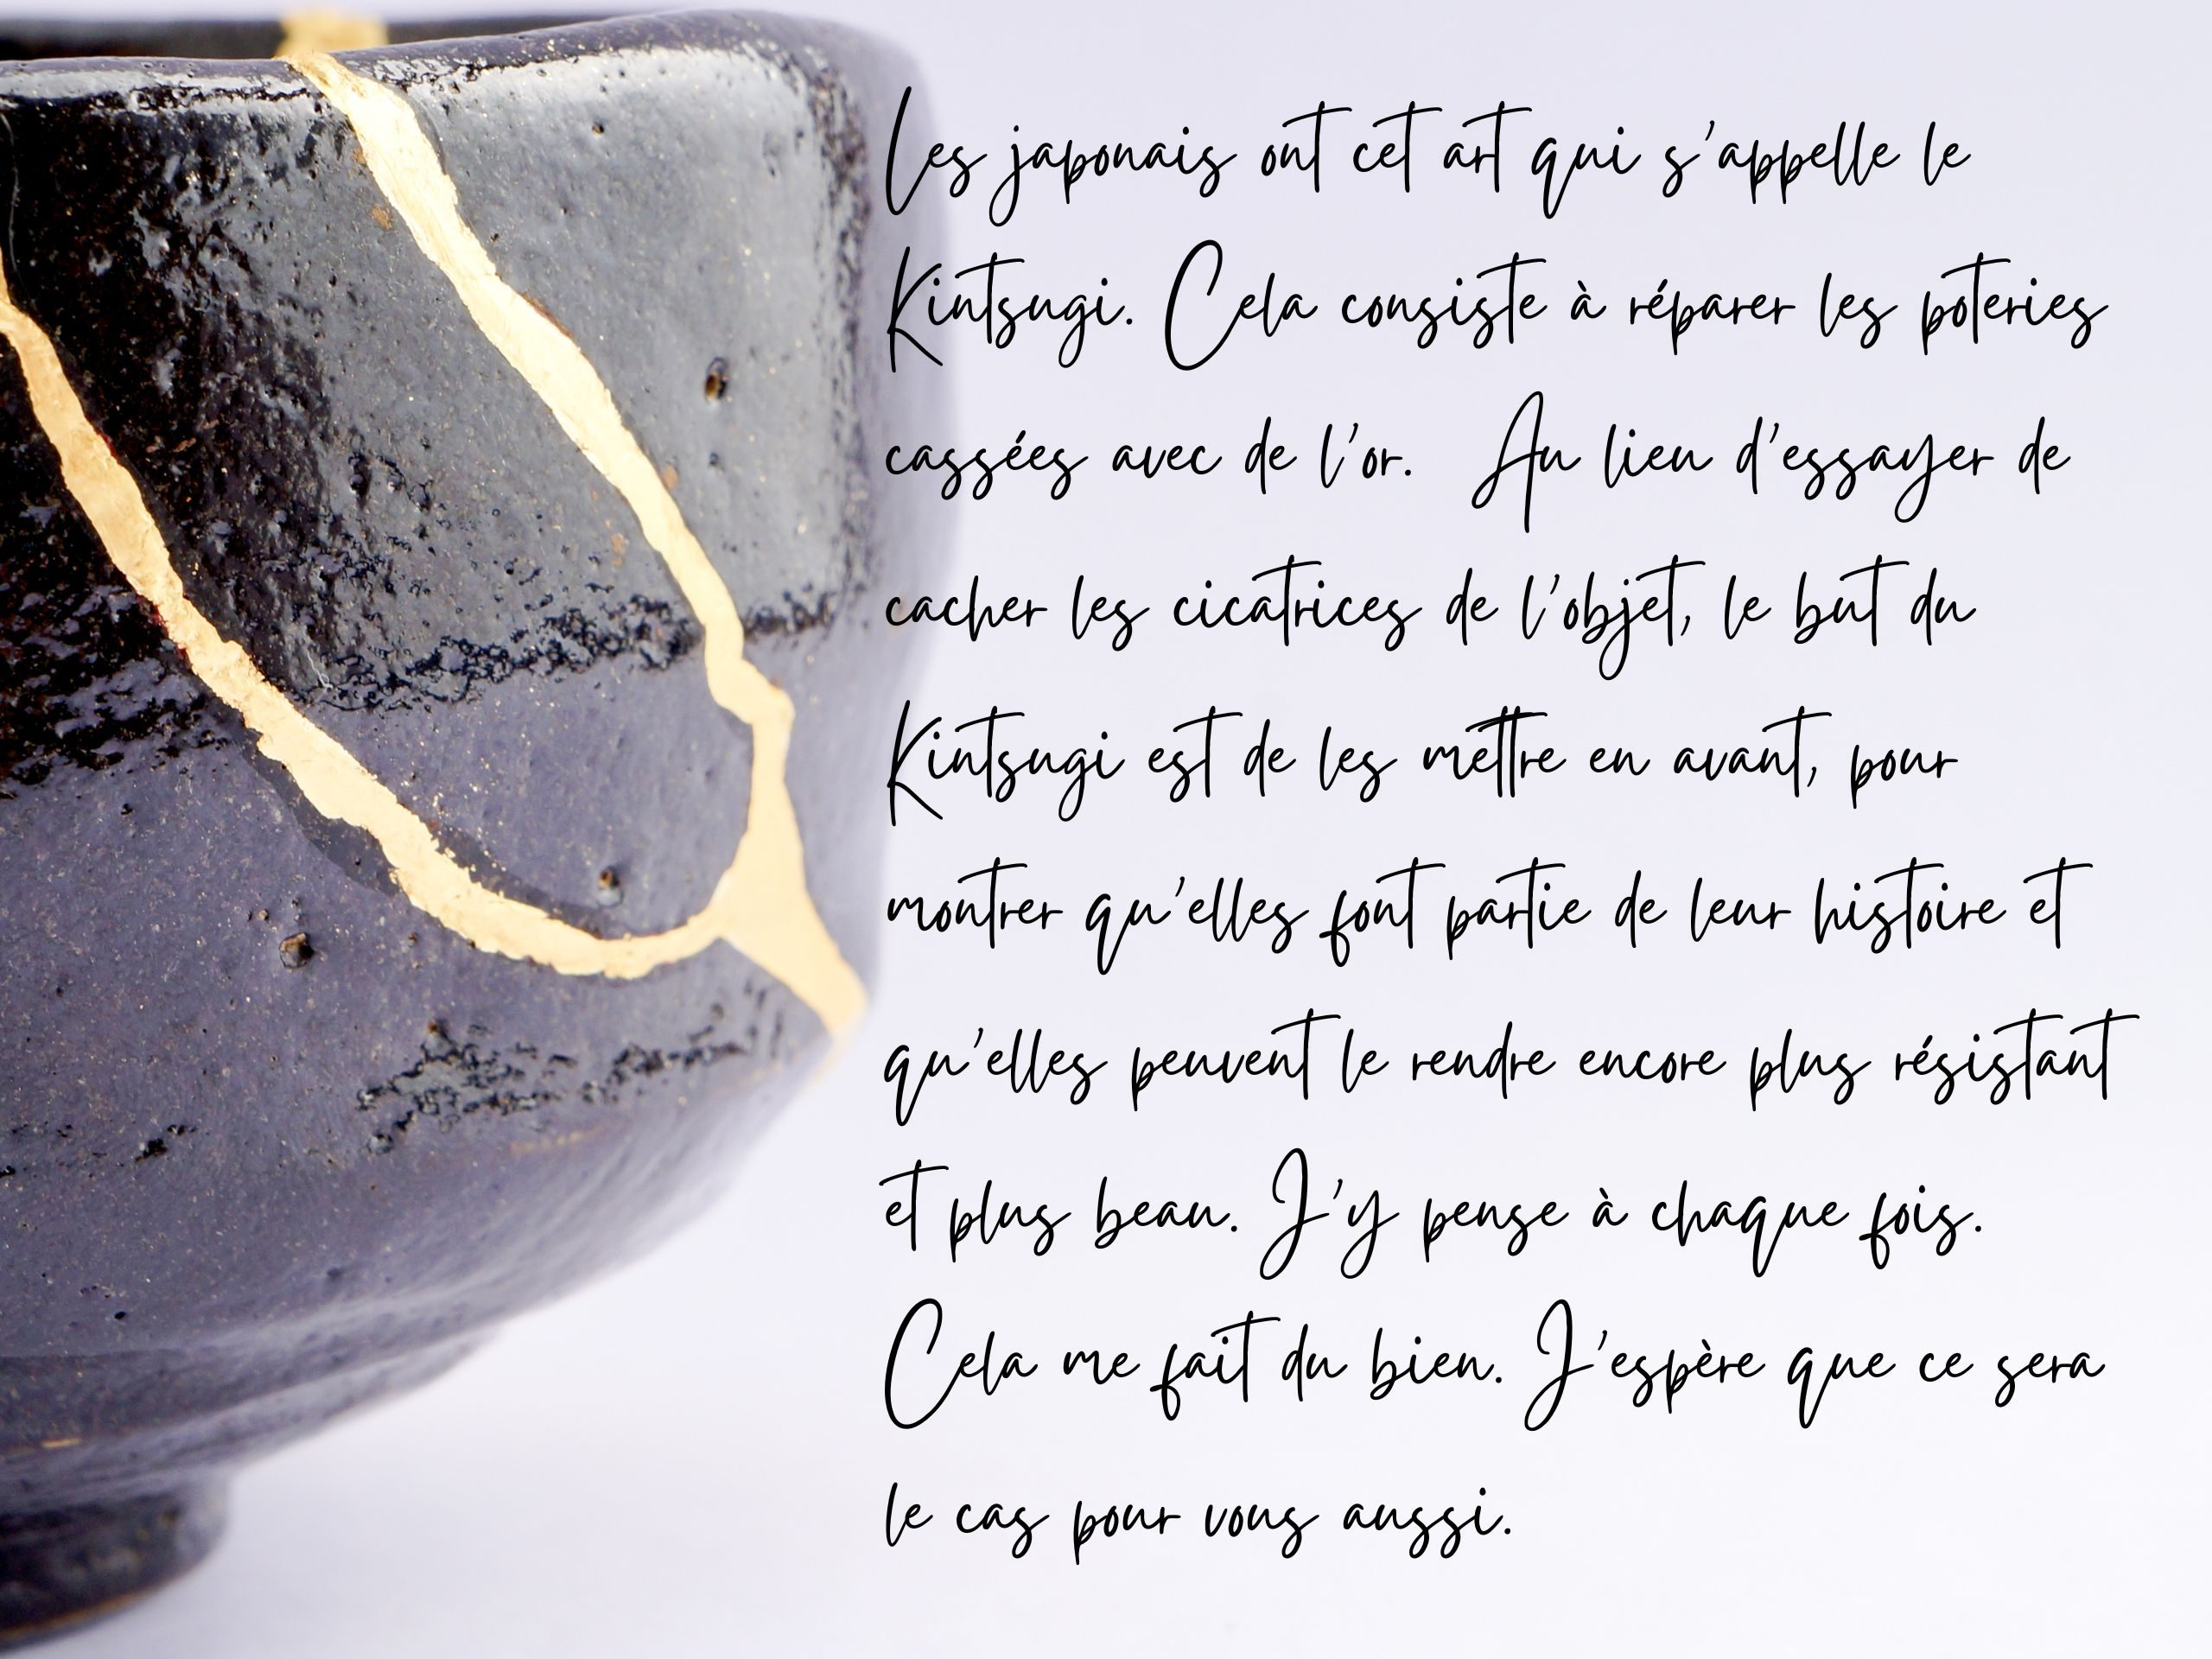 Les japonais ont cet art qui s'appelle le
Kintsugi. Cela consiste à réparer les poteries
cassées avec de l'or. Au lieu d'essayer de
cacher les cicatrices de l'objet, le but du
Kintsugi est de les mettre en avant, pour
montrer qu'elles font partie de leur histoire et
qu'elles peuvent le rendre encore plus résistant
et plus beau. J'y pense à chaque fois.
Cela me fait du bien. J'espère que ce sera
le cas pour vous aussi.